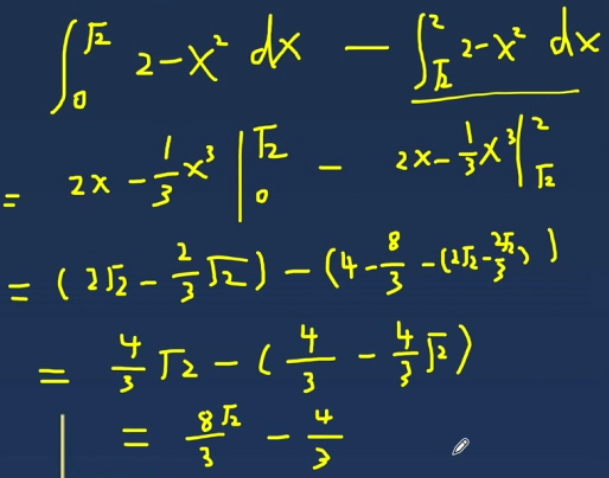 ∫₀^√2 2-x² dx - ∫_√2^2 2-x² dx
= 2x - 1/3 x³ |₀^√2 - 2x - 1/3 x³ |_√2^2
= (2√2 - 2/3 √2) - (4 - 8/3 - (2√2 - 2√2/3))
= 4/3 √2 - (4/3 - 4/3 √2)
= 8√2/3 - 4/3